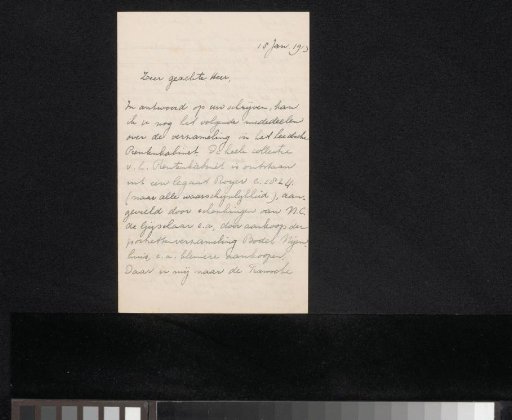 18 Jan. 1913
Zeer geachte Heer,
In antwoord op uw schrijven, kan
ik u nog het volgende mededeelen
over de verzameling in het Leidsche
Prentenkabinet. De heele collectie
v. h. Prentenkabinet is ontstaan
uit een legaat Royer c. 1814
(naar alle waarschijnlijkheid), aan-
gevuld door schenkingen van N.C.
de Gijselaar e.a., door aankoop der
portrettenverzameling Bodel Nijen-
huis, e.a. kleinere aankoopen.
Daar er mij naar de Fransche